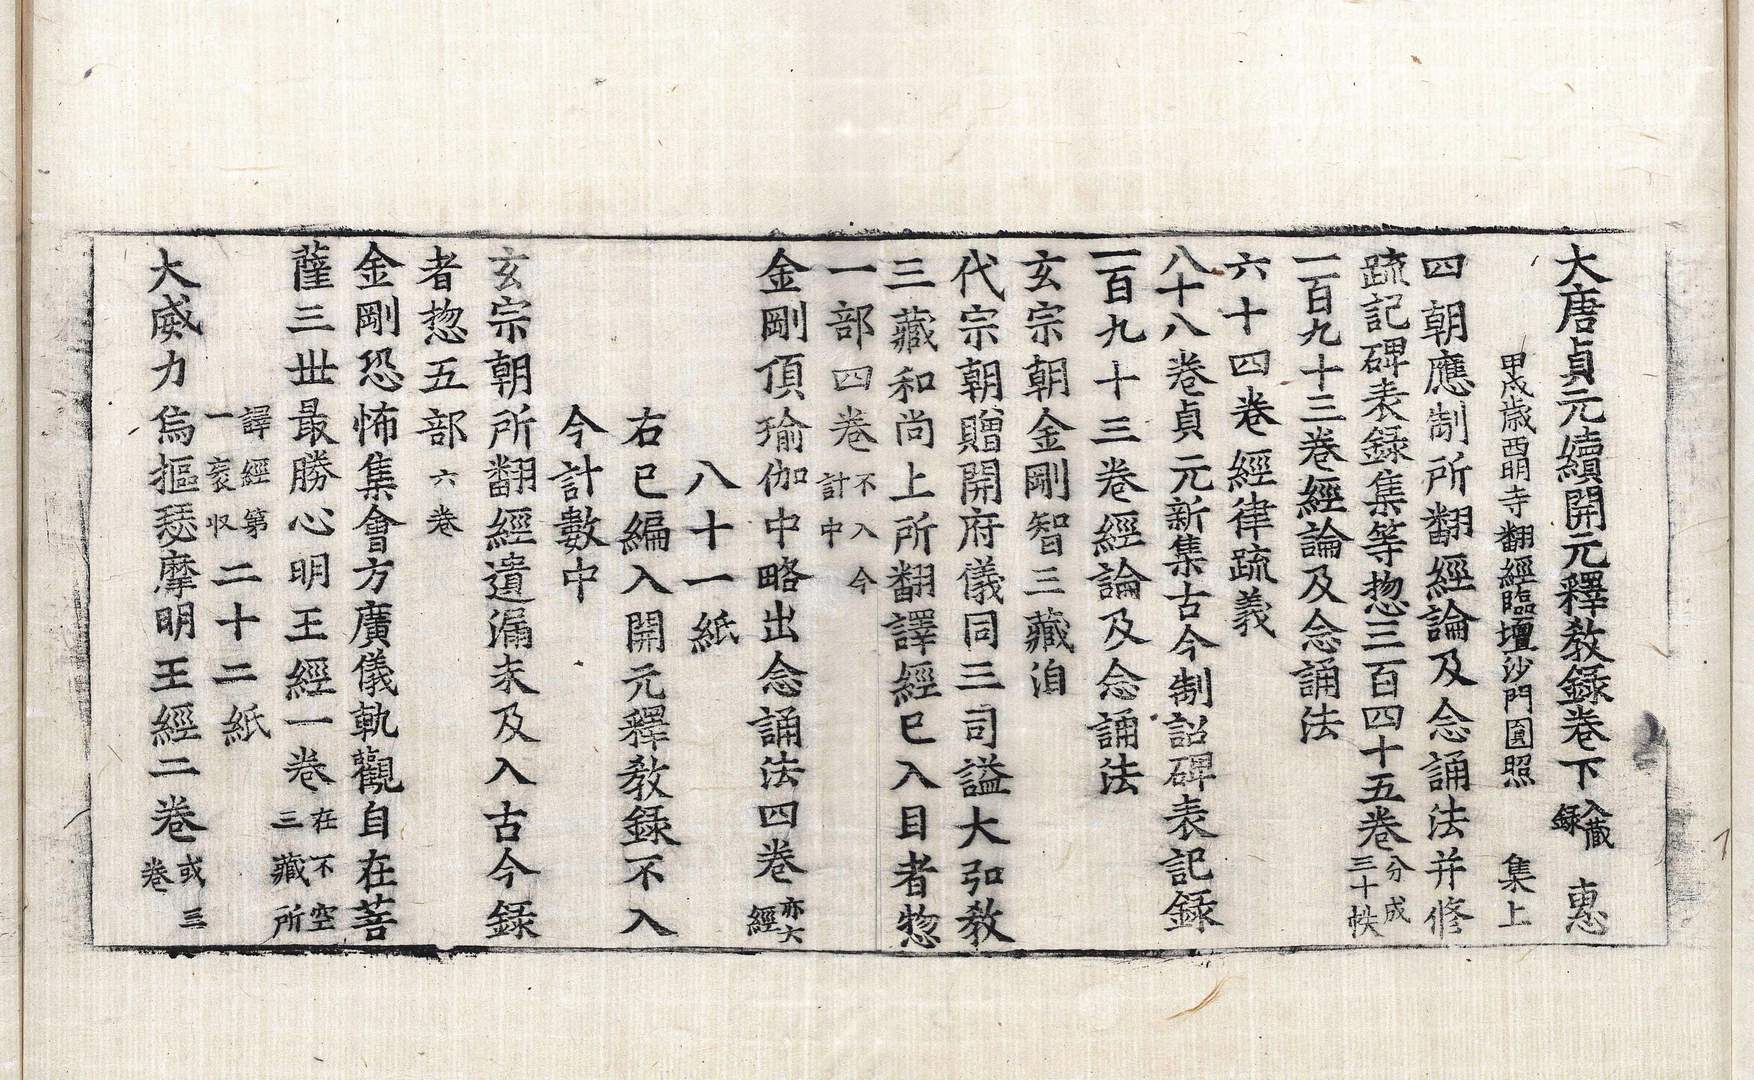 大唐貞元續開元釋教錄卷下入藏錄 惠
甲戌歲西明寺翻經臨壇沙門圓照 集上
四朝應制所翻經論及念誦法并修
䟽記碑表錄集等惣三百四十五卷分成三十帙
一百九十三卷經論及念誦法
六十四卷經律䟽義
八十八卷貞元新集古今制詔碑表記錄
一百九十三卷經論及念誦法
玄宗朝金剛智三藏洎
代宗朝贈開府儀同三司謚大弘教
三藏和尚上所翻譯經已入目者惣
一部四卷不入今計中
金剛頂瑜伽中略出念誦法四卷亦六經
八十一紙
右已編入開元釋教錄不入
今計數中
玄宗朝所翻經遺漏未及入古今錄
者惣五部六卷
金剛恐怖集會方廣儀軌觀自在菩
薩三丗最勝心明王經一卷在不空三藏所
譯經第一袠収二十二紙
大威力烏摳瑟摩明王經二卷或三卷